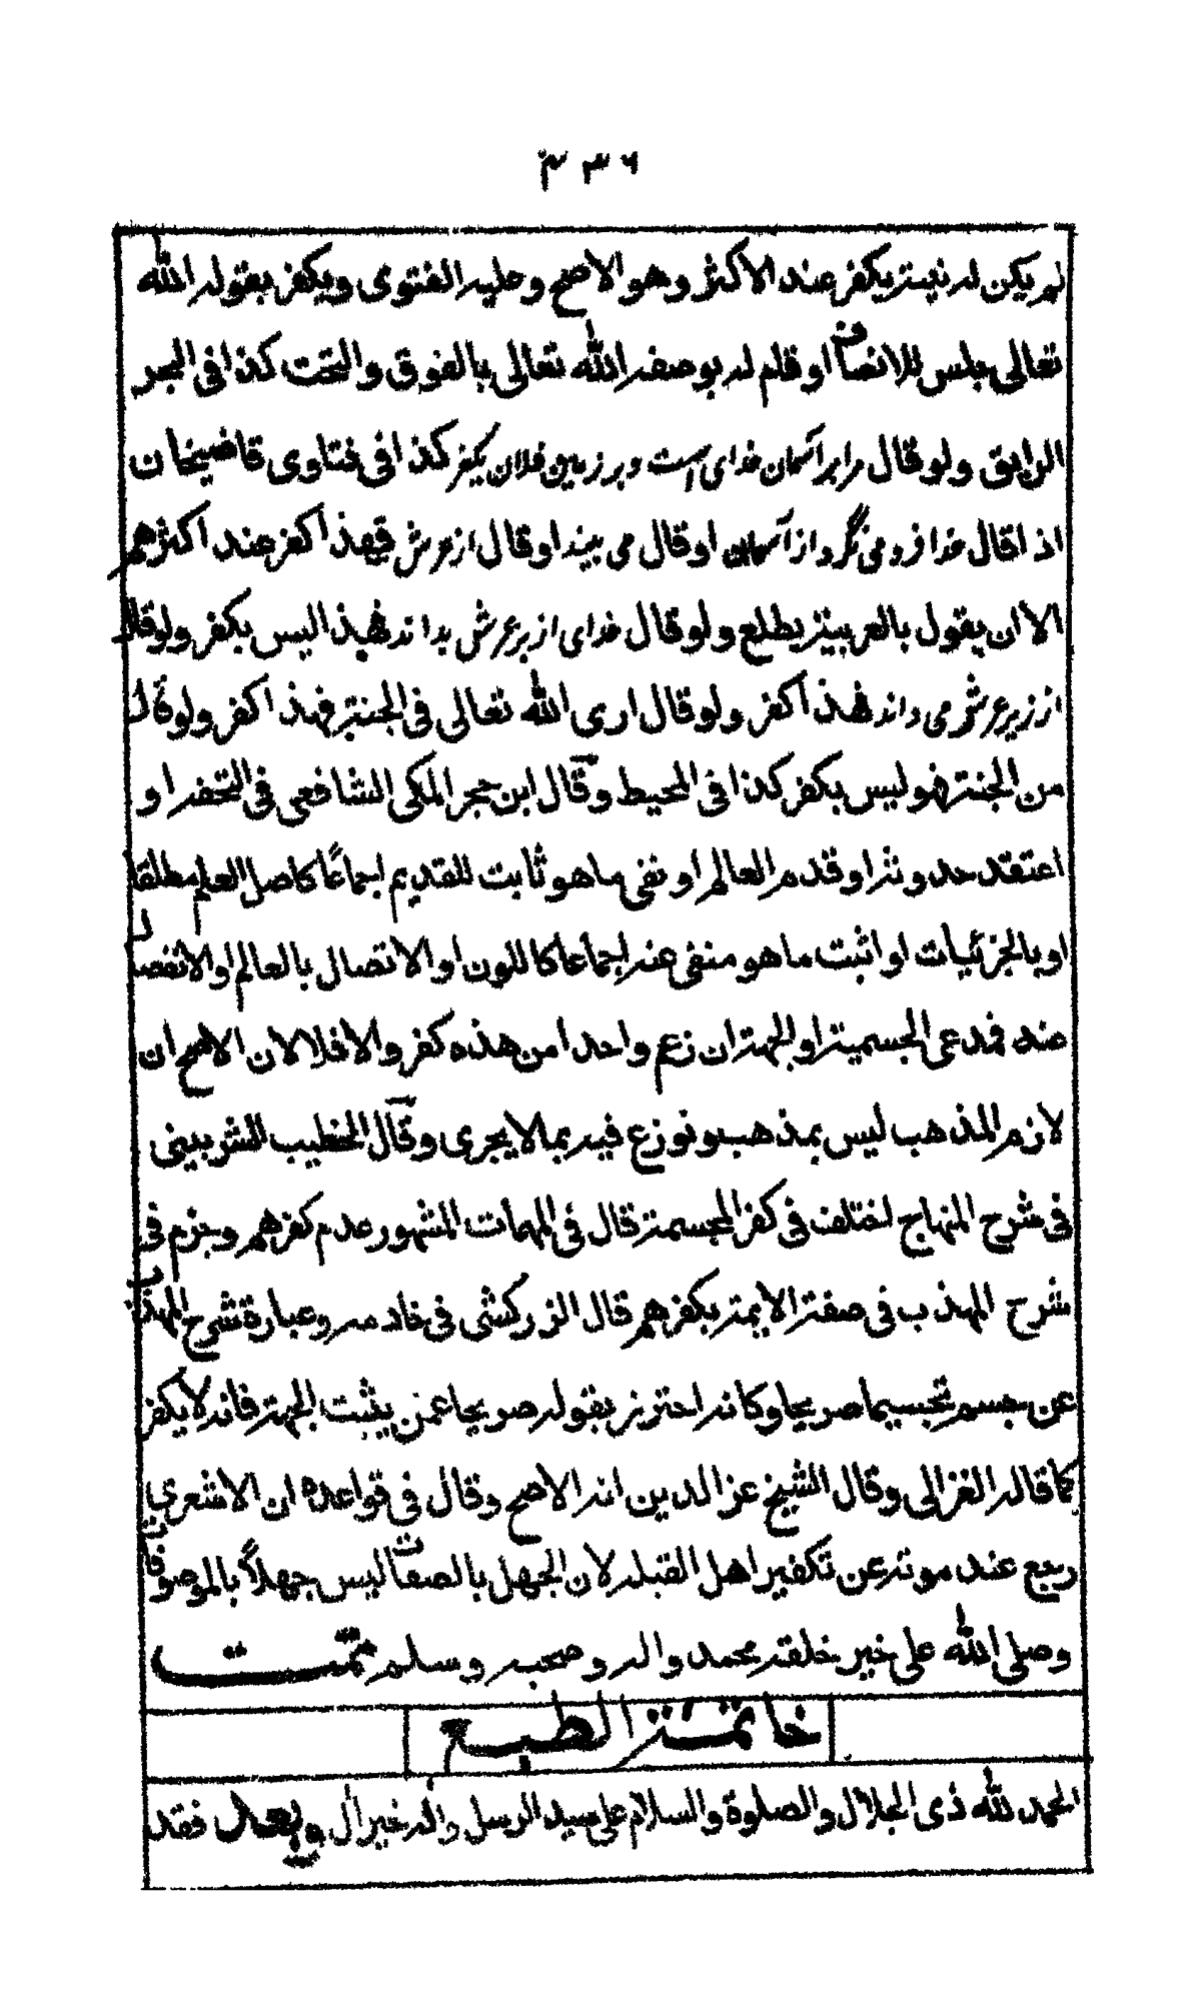 ٣٣٦
لم يكن له نية يكفر عند الاكثر وهو الاصح وعليه الفتوى ويكفر بقوله الله
تعالى جلس للانصاف او قام له بوصفه الله تعالى بالفوق والتحت كذا فى البحر
الرايق ولو قال مرا بر آسمان خداى است وبر زمين فلان يكفر كذا فى فتاوى قاضيخان
اذا قال خدا فرو مى نگرد از آسمان او قال مى بيند او قال از عرش فهذا كفر عند اكثرهم
الا ان يقول بالعربية يطلع ولو قال خداى از بر عرش بداند فهذا ليس بكفر ولو قال
از زير عرش مى داند فهذا كفر ولو قال ارى الله تعالى فى الجنة فهذا كفر ولو قال
من الجنة فهو ليس بكفر كذا فى المحيط وقال ابن حجر المكى الشافعى فى التحفه او
اعتقد حدوثه او قدم العالم او نفى ما هو ثابت للقديم اجماعًا كاصل العلم مطلقا
او بالجزئيات او اثبت ما هو منفى عنه اجماعا كاللون او الاتصال بالعالم او الانفصال
عنه فمدعى الجسمية او الجهة ان زعم واحدا من هذه كفر والا فلا لان الاصح ان
لازم المذهب ليس بمذهب ونوزع فيه بما لا يجرى وقال الخطيب الشربينى
فى شرح المنهاج اختلف فى كفر المجسمة قال فى المهمات المشهور عدم كفرهم وجزم فى
شرح المهذب فى صفة الايمة بكفرهم قال الزركشى فى خادمه وعبارة شرح المهذب
عن جسم تجسيما صريحا وكانه احترز بقوله صريحا عمن يثبت الجهة فانه لا يكفر
كما قاله الغزالى وقال الشيخ عز الدين انه الاصح وقال فى قواعده ان الاشعرى
رجع عند موته عن تكفير اهل القبله لان الجهل بالصفات ليس جهلاً بالموصوفات
وصلى الله على خير خلقه محمد واله وصحبه وسلم تمت
خاتمة الطبع
الحمد لله ذى الجلال والصلوة والسلام على سيد الرسل واله خير ال وبعد فقد